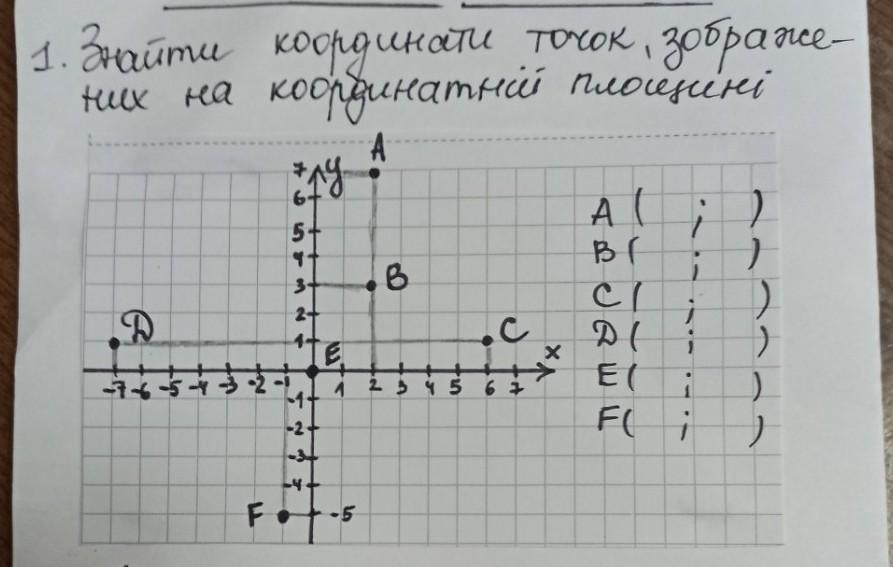 1. Знайти координати точок, зображе-
них на координатній площині
A
7 y
6
5
4
3 B
2
D 1 C
E x
-7 -6 -5 -4 -3 -2 -1 1 2 3 4 5 6 7
-1
-2
-3
-4
F -5
A ( ; )
B ( ; )
C ( ; )
D ( ; )
E ( ; )
F ( ; )